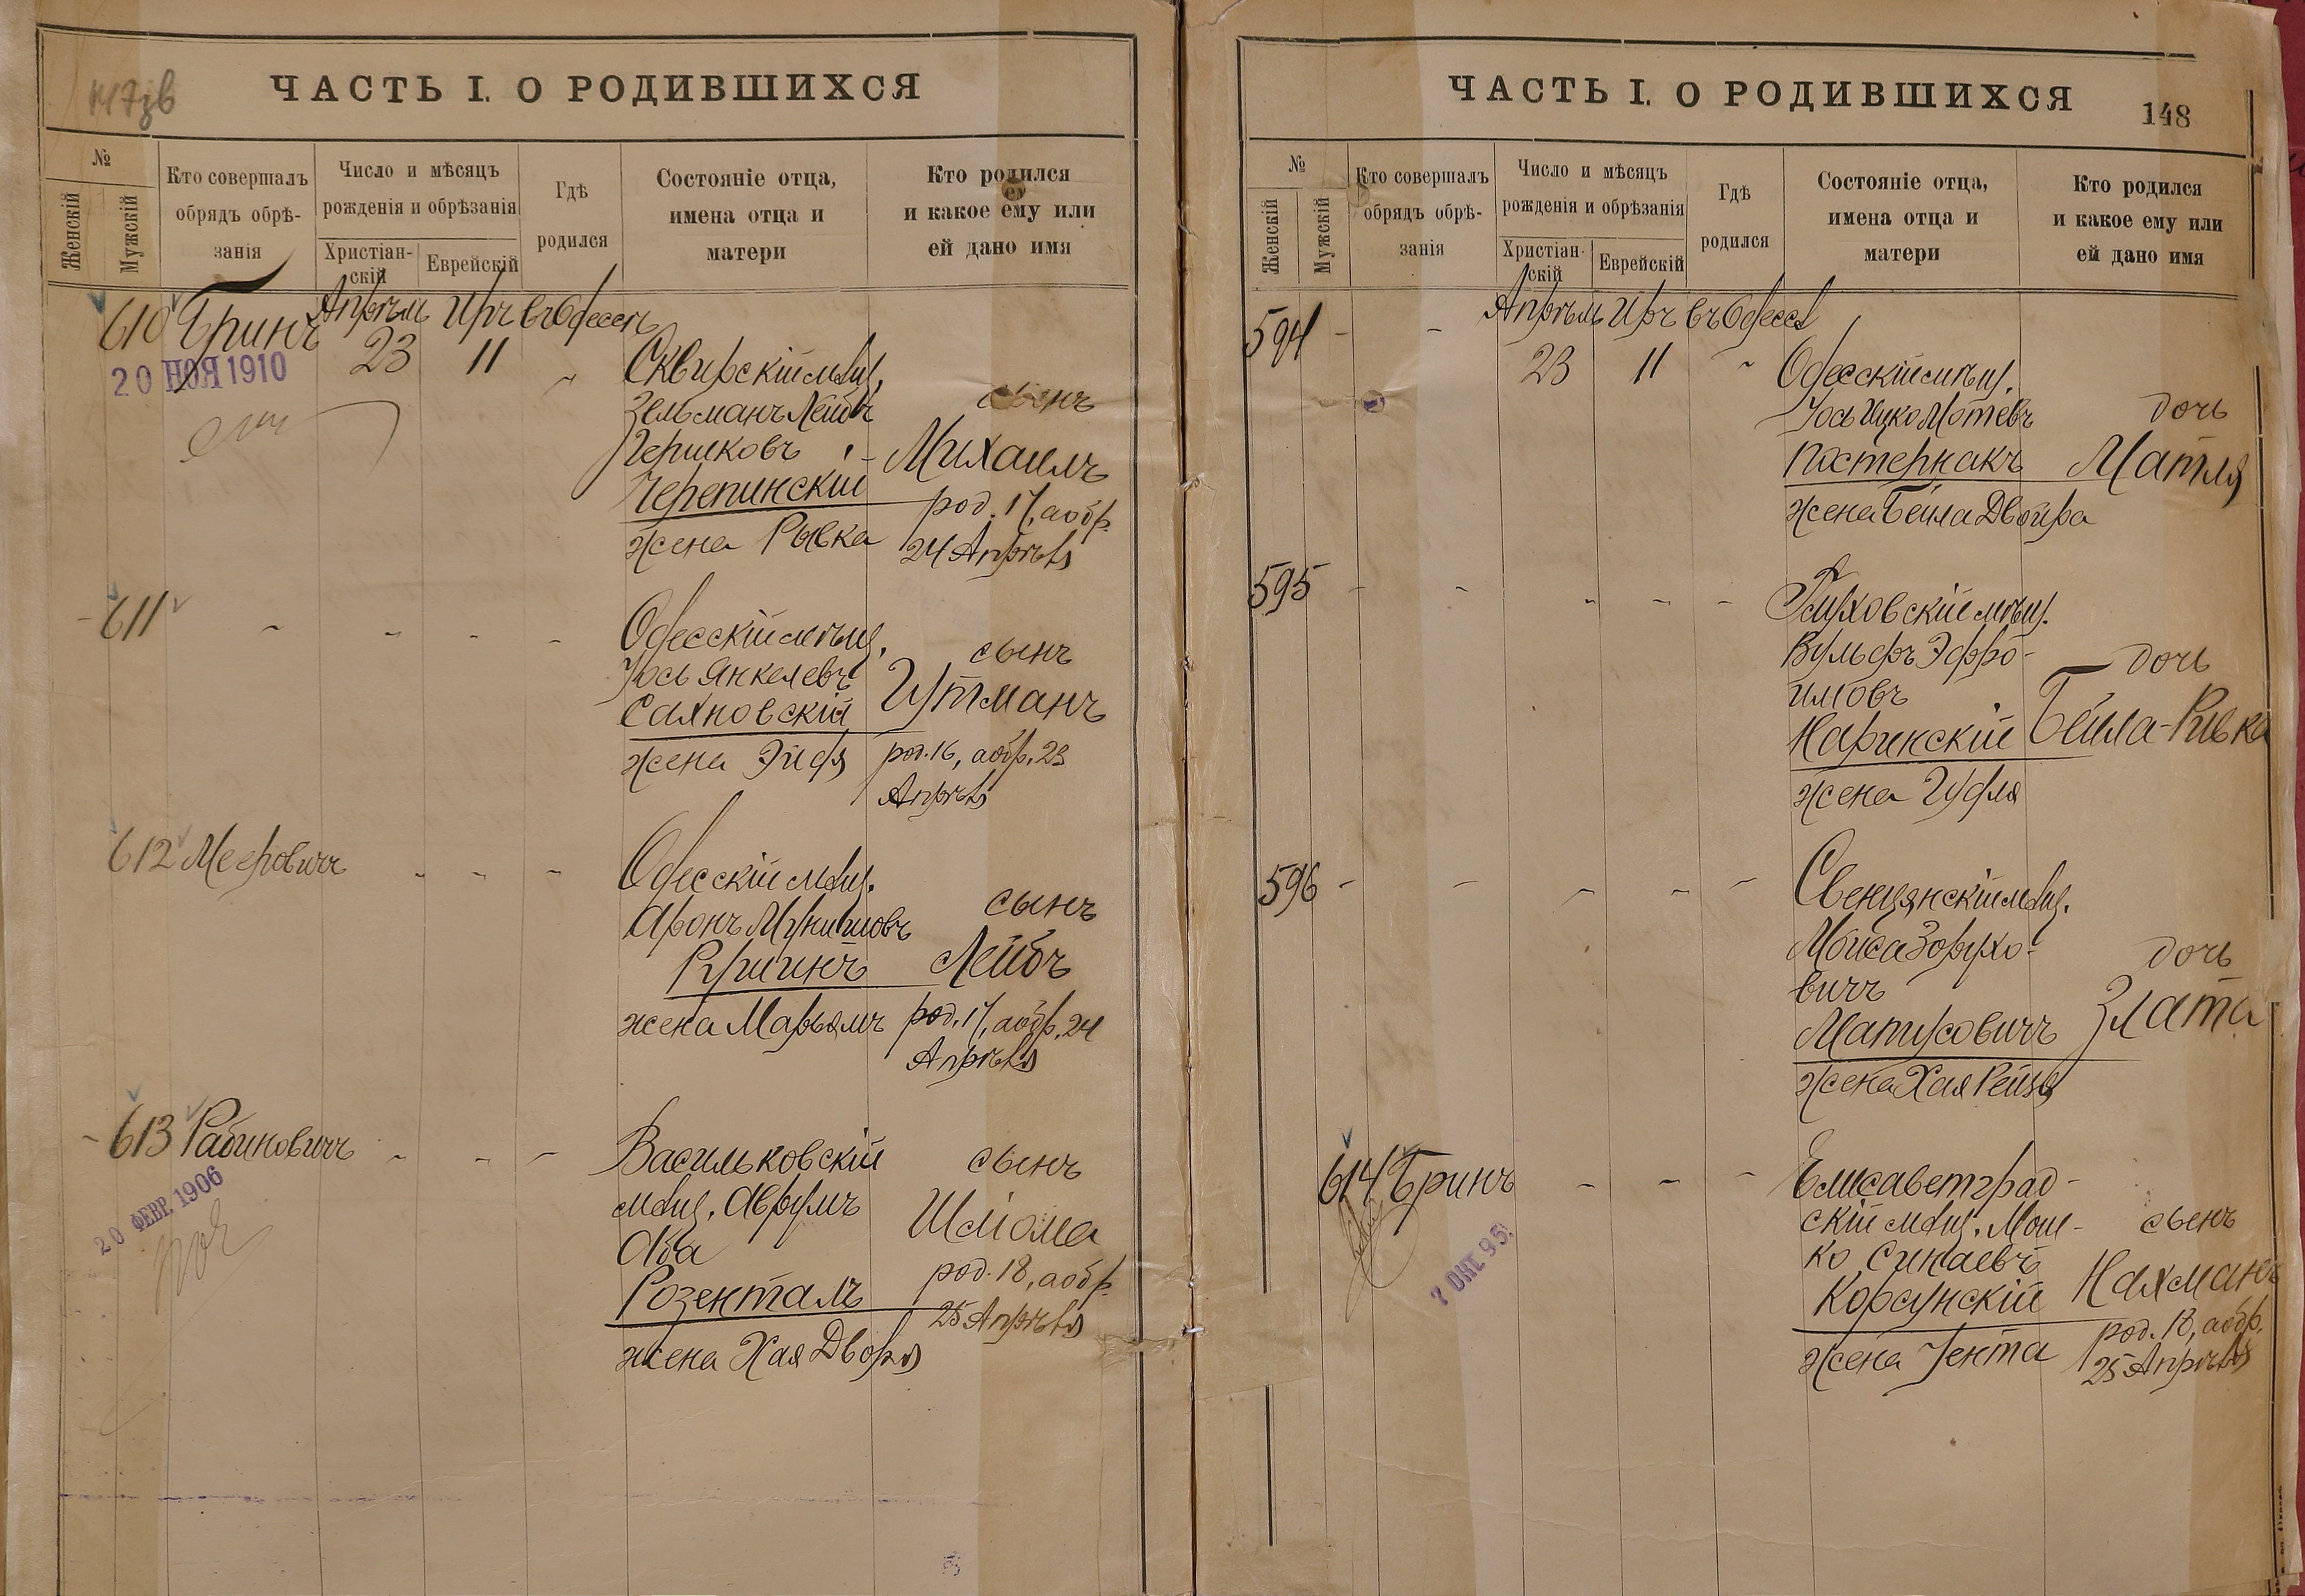 147зв
ЧАСТЬ I. О РОДИВШИХСЯ
№
Женскій
Мужскій
Кто совершалъ
обрядъ обрѣ-
занія
Число и мѣсяцъ
рожденія и обрѣзанія
Христіан-
скій
Еврейскій
Гдѣ
родился
Состояніе отца,
имена отца и
матери
Кто родился
и какое ему или
ей дано имя
610 Бринъ Апрѣль Іиръ въ Одессѣ
20 НОЯ 1910
23 11 Сквирскій мѣщ.
Зельманъ Лейбъ сынъ
Гершковъ Михаилъ
Черепинскій род. 17, а обр.
жена Рывка 24 Апрѣля
611 Одесскій мѣщ.
Іось Янкелевъ сынъ
Сахновскій Гутманъ
жена Эйдя род. 16, а обр. 23
Апрѣля
612 Мееровичъ Одесскій мѣщ.
Аронъ сынъ
Лейбъ
жена Марьямъ род. 17, а обр. 24
Апрѣля
613 Рабиновичъ Васильковскій сынъ
20 ФЕВР. 1906
мѣщ. Аврумъ Шлома
Розенталь род. 18, а обр.
25 Апрѣля
жена Хая Двойра
ЧАСТЬ I. О РОДИВШИХСЯ
148
№
Женскій
Мужскій
Кто совершалъ
обрядъ обрѣ-
занія
Число и мѣсяцъ
рожденія и обрѣзанія
Христіан-
скій
Еврейскій
Гдѣ
родился
Состояніе отца,
имена отца и
матери
Кто родился
и какое ему или
ей дано имя
594 - - Апрѣль Іиръ въ Одессѣ
23 11 Одесскій мѣщ.
Іось Ицко Мотевъ дочь
Постернакъ Матля
жена Бейла Двойра
595 - Глуховскій мѣщ.
Вульфъ Эфро- дочь
имовъ
Наринскій Бейла-Ривка
жена Гудля
596 - Свенцянскій мѣщ.
дочь
вичъ
Матусовичъ Злата
жена Хая Рейзя
614 Бринъ Елисаветград-
7 ОКТ. 95.
скій мѣщ. Мош- сынъ
ко Синаевъ
Корсунскій Нахманъ
род. 18, а обр.
жена Іента 25 Апрѣля